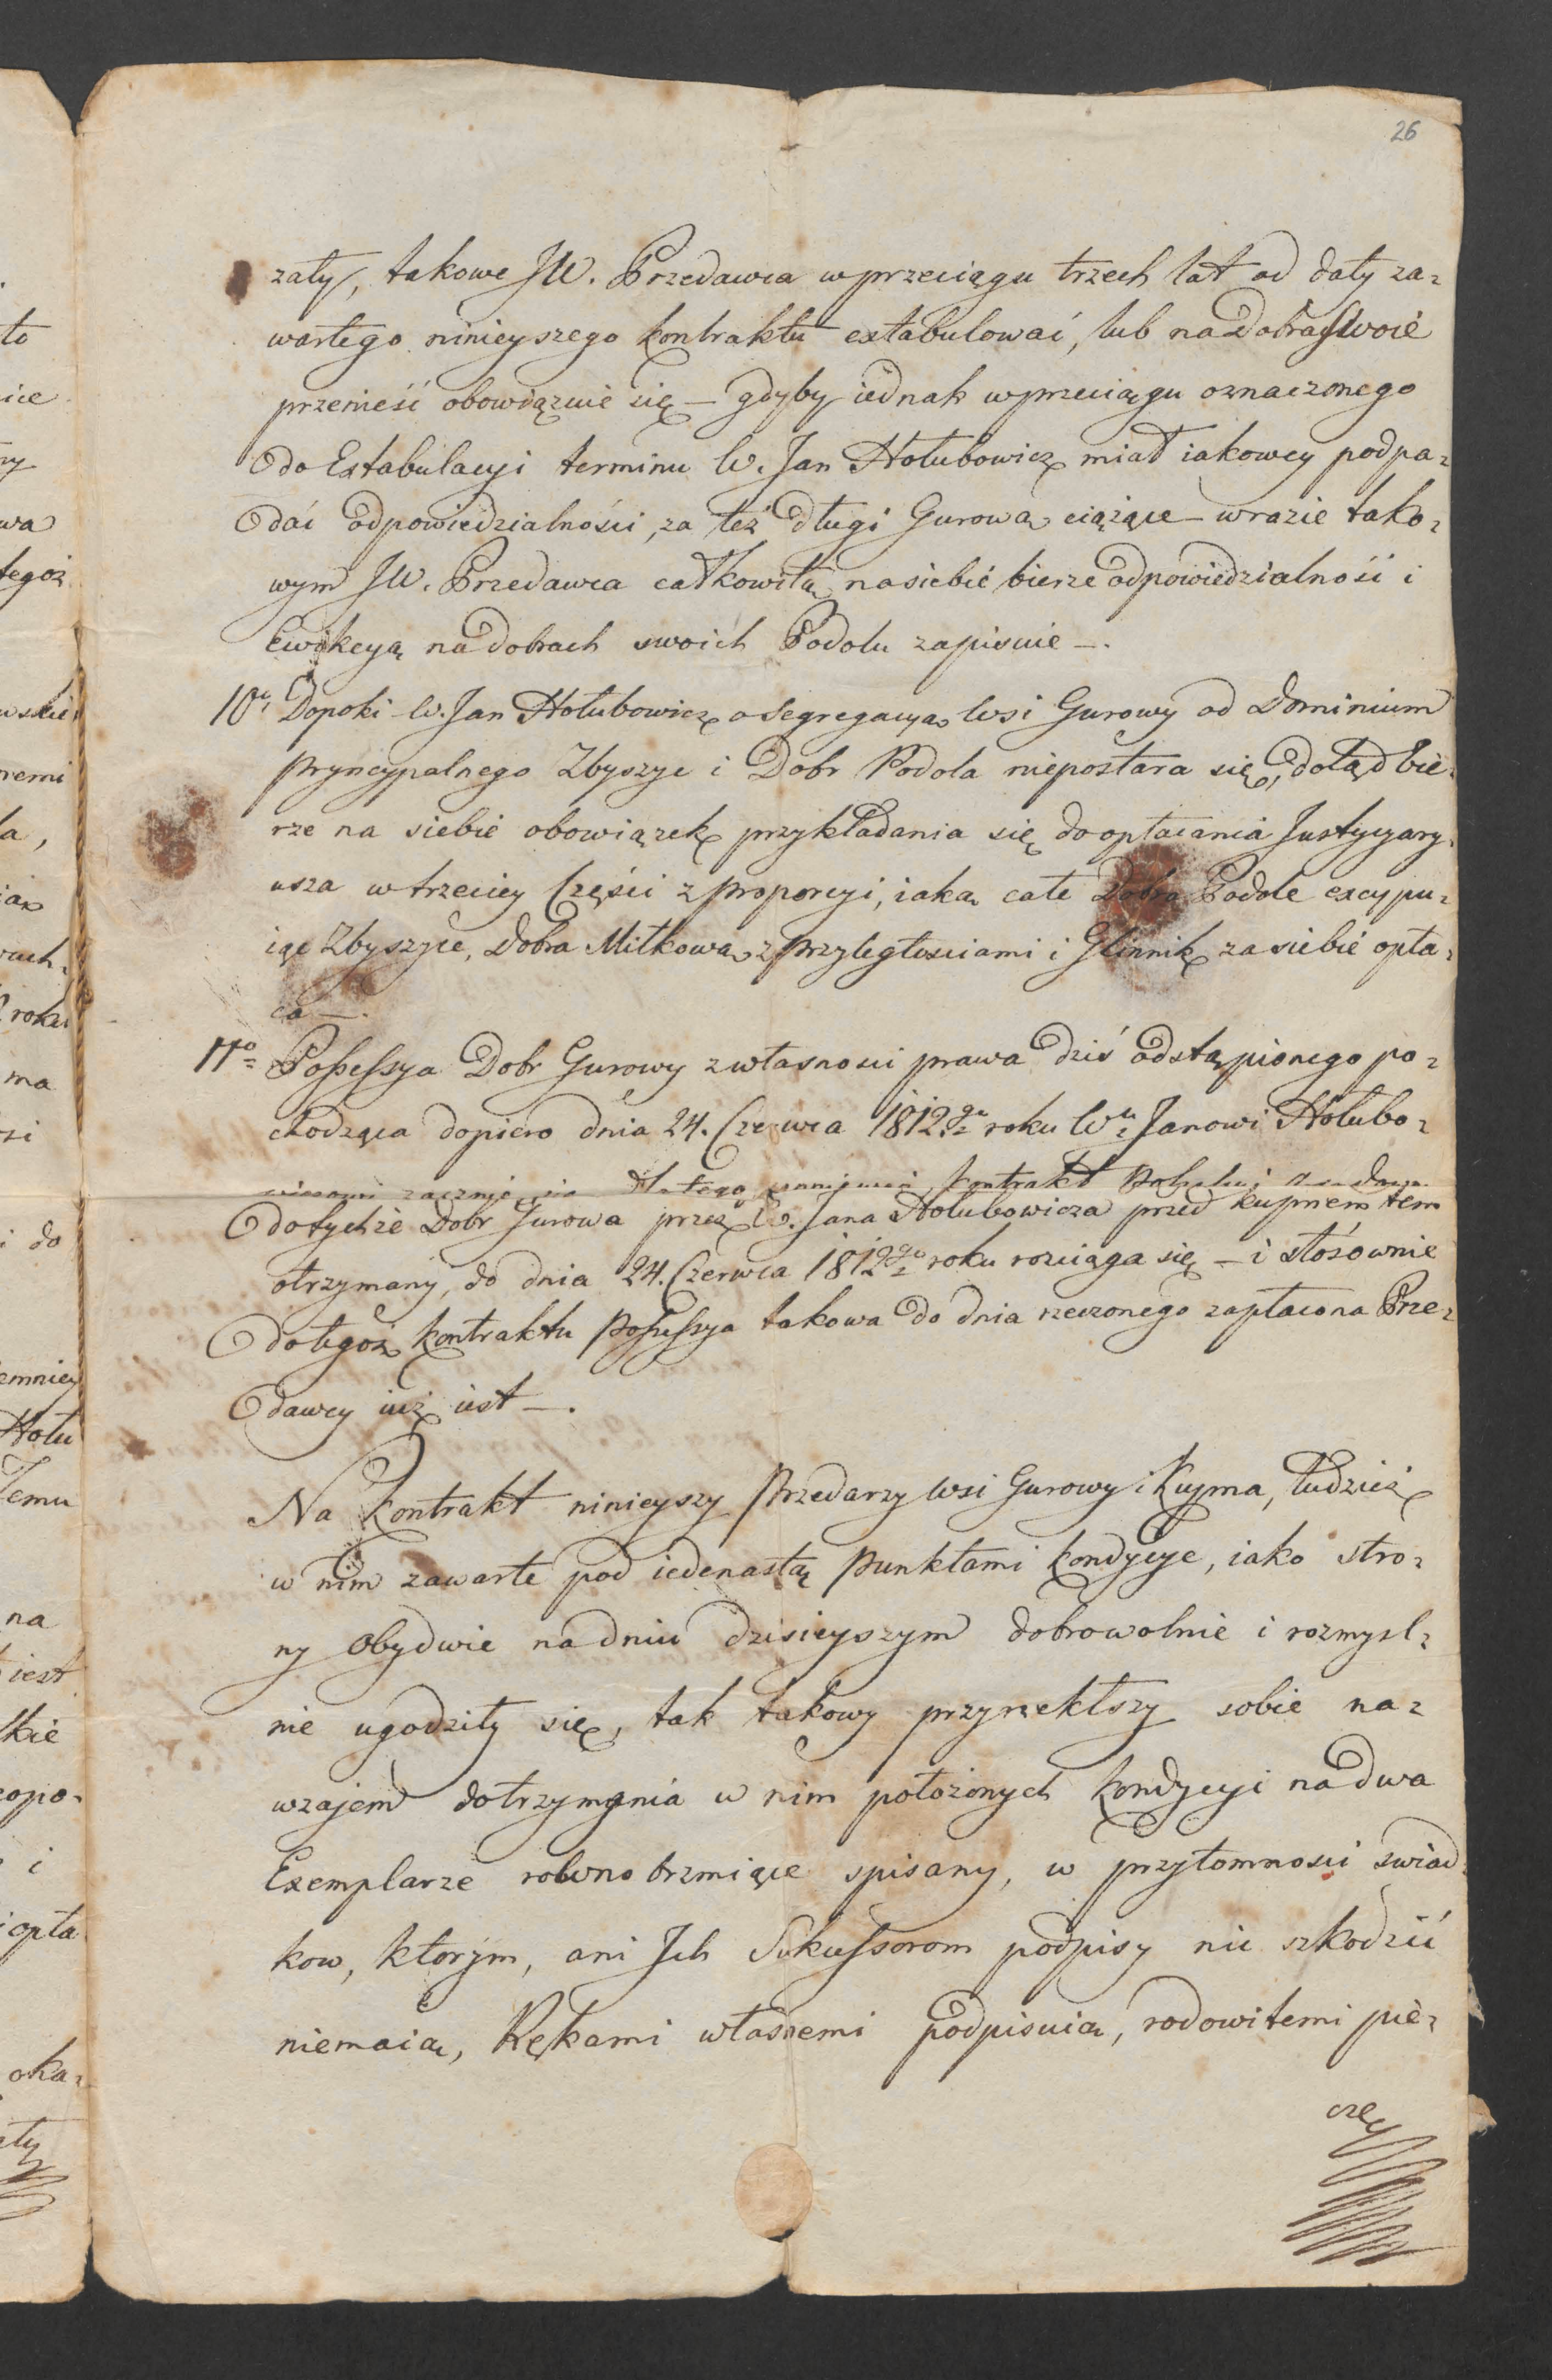 26
zały, takowe JW. Przedawca w przeciągu trzech lat od daty za=
wartego ninieyszego kontraktu extabulować, lub na dobra swoie
przenieść obowiązuie się — gdyby iednak w przeciągu oznaczonego
do Extabulacyi terminu W. Jan Hołubowicz miał iakowey podpa=
dać odpowiedzialności, za też długi Gurowa ciążące — w razie tako=
wym JW. Przedawca całkowitą na siebie bierze odpowiedzialność i
Ewikcyą na dobrach swoich Podolu zapisuie —.
10o Dopoki W. Jan Hołubowicz o segregacyą Wsi Gurowy od Dominium
pryncypalnego Zbyszyc i Dobr Podola niepostara się, dotąd bie=
rze na siebie obowiązek przykładania się do opłacania Justycyary=
usza w trzeciey Części z proporcyi, iaką całe Dobra Podole excypu=
iąc Zbyszyce, Dobra Miłkowa z przyległosciami i Glinnik za siebie opła=
ca —.
11o Possessya Dobr Gurowy z własnosci prawa dziś odstąpionego po=
chodząca dopiero dnia 24. Czerwca 1812go roku Wu Janowi Hołubo=
wiczowi zacznie się dla tego ponieważ kontrakt
do tychże Dobr Gurowa przez W. Jana Hołubowicza przed kupnem tem
otrzymany, do dnia 24. Czerwca 1812go roku rozciąga się — i stósownie
do tegoż kontraktu possessya takowa do dnia rzeczonego zapłacona Prze=
dawcy iuż iest —.
Na kontrakt ninieyszy przedarzy Wsi Gurowy i Kupna, tudzież
w nim zawarte pod iedenastą punktami kondycye, iako stro=
ny obydwie na dniu dzisieyszym dobrowolnie i rozmysl=
nie ugodziły się, tak takowy przyrzekłszy sobie na=
wzajem dotrzymania w nim położonych kondycyi na dwa
Exemplarze rowno brzmiące spisany, w przytomnosci swiad=
kow, ktorym, ani Jch Sukcessorom podpisy nic szkodzić
niemaią, Rękami własnemi podpisuią, rodowitemi pie=
czę